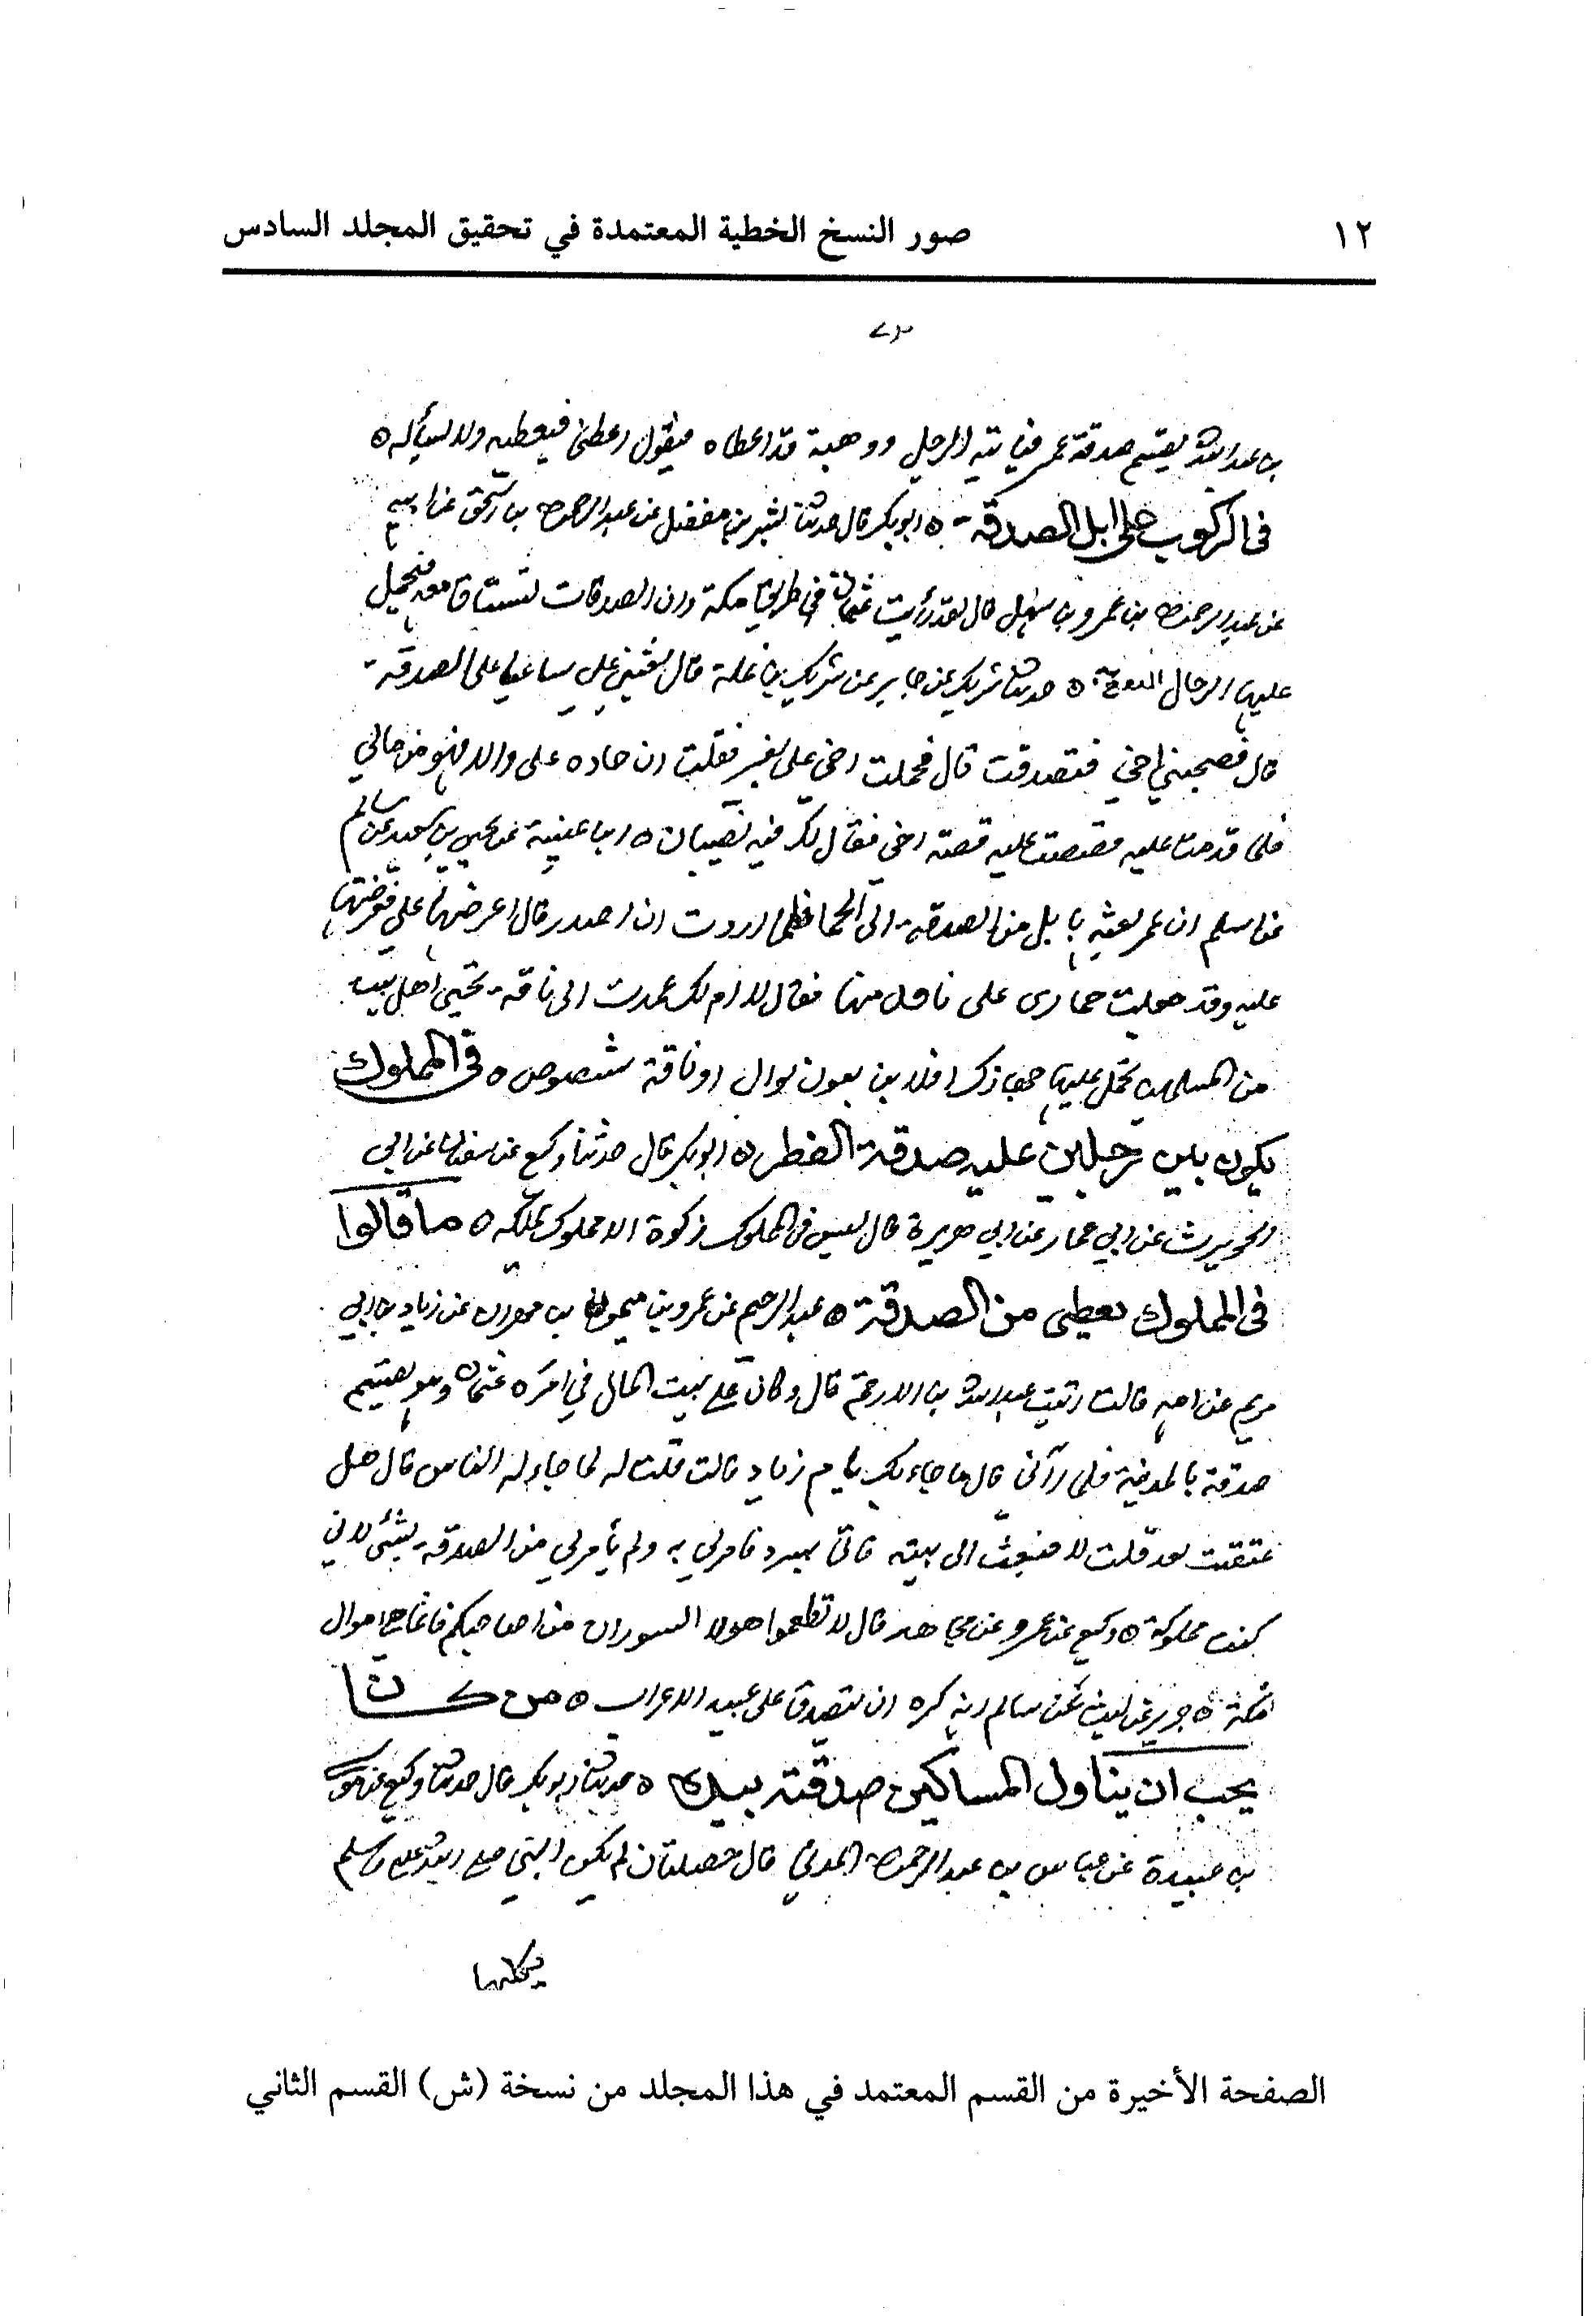 ١٢
صور النسخ الخطية المعتمدة في تحقيق المجلد السادس
بن عبد الله يقسم صدقة عمر فيأتيه الرجل ذو هيبة قد أعطاه فيقول أعطني فيعطيه ولا يسأله ه
في الركوب على ابل الصدقة ه ابو بكر قال حدثنا بشر بن مفضل عن عبد الرحمن بن اسحق عن ابيه
عن عبد الرحمن بن عمرو بن سهل قال لقد رأيت عثمان في طريق مكة وان الصدقات لتساق معه فيحمل
عليها الرجال ه حدثنا شريك عن جابر عن شريك بن نملة قال بعثني علي ساعيا على الصدقة
قال فصحبني اخي فتصدقت قال فحملت اخي على بعير فقلت ان جازه علي والا فهو من مالي
فلما قدمت عليه قصصت عليه قصة اخي فقال لك فيه نصيبان ه ابن عيينة عن يحيى بن سعيد عن سالم
عن اسلم ان عمر بعثه بابل من الصدقة الى الحما فلما اردت ان اصدر قال اعرضها علي فعرضتها
عليه وقد جعلت جهازي على ناقة منها فقال لا ام لك عمدت الى ناقة تحيي اهل بيت
من المسلمين تحمل عليها جهازك افلا بن لبون بوال او ناقة شصوص ه في المملوك
يكون بين رجلين عليه صدقة الفطر ه ابو بكر قال حدثنا وكيع عن سفيان عن ابي
الحويرث عن ابي عمار عن ابي هريرة قال ليس في المملوك زكوة الا مملوك تملكه ه ما قالوا
في المملوك يعطى من الصدقة ه عبد الرحيم عن عمرو بن ميمون بن مهران عن زياد بن ابي
مريم عن امه قالت اتيت عبد الله بن الارقم قال وكان على بيت المال في امرة عثمان وهو يقسم
صدقة بالمدينة فلما رآني قال ما جاء بك يا ام زياد قالت قلت له لما جاء له الناس قال هل
عتقت بعد قلت لا فبعث الى بيته فاتى ببرد فامر لي به ولم يأمر لي من الصدقة بشئ لاني
كنت مملوكة ه وكيع عن عمرو عن مجاهد قال لا تطعموا هولا السودان من اضاحيكم فانما هي اموال
اهل مكة ه جرير عن ليث عن سالم انه كره ان يتصدق على عبيد الاعراب ه من كان
يحب ان يناول المساكين صدقته بيده ه حدثنا ابو بكر قال حدثنا وكيع عن موسى
بن عبيدة عن عباس بن عبد الرحمن المدني قال خصلتان لم يكن النبي صلى الله عليه وسلم
يكلهما
الصفحة الأخيرة من القسم المعتمد في هذا المجلد من نسخة (ش) القسم الثاني